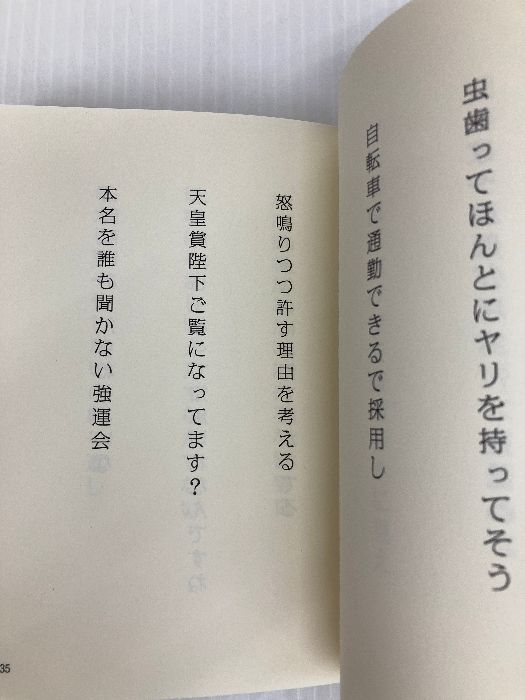 虫歯ってほんとにヤリを持ってそう
自転車で通勤できるで採用し
怒鳴りつつ許す理由を考える
天皇賞陛下ご覧になってます?
本名を誰も聞かない強運会
35